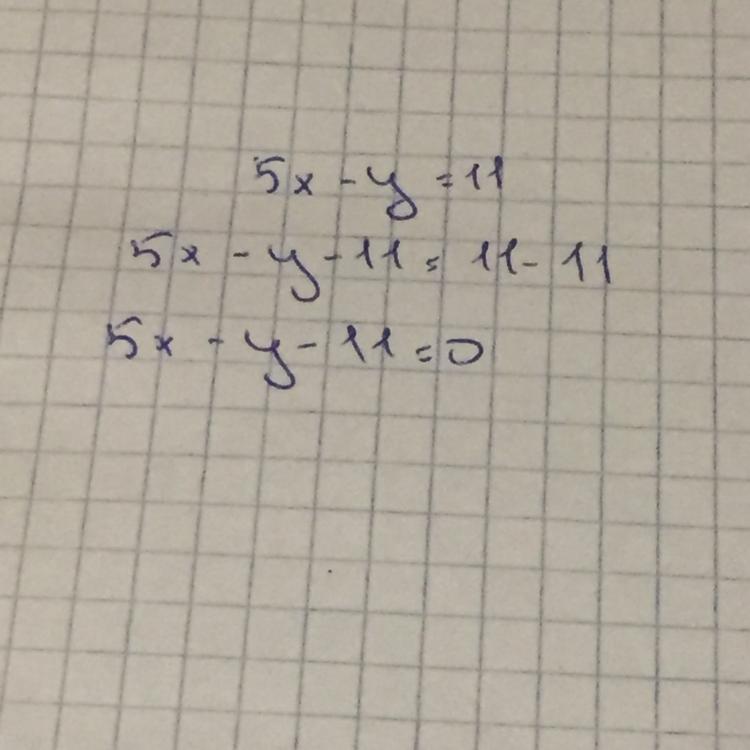 5x - y = 11
5x - y - 11 = 11 - 11
5x - y - 11 = 0